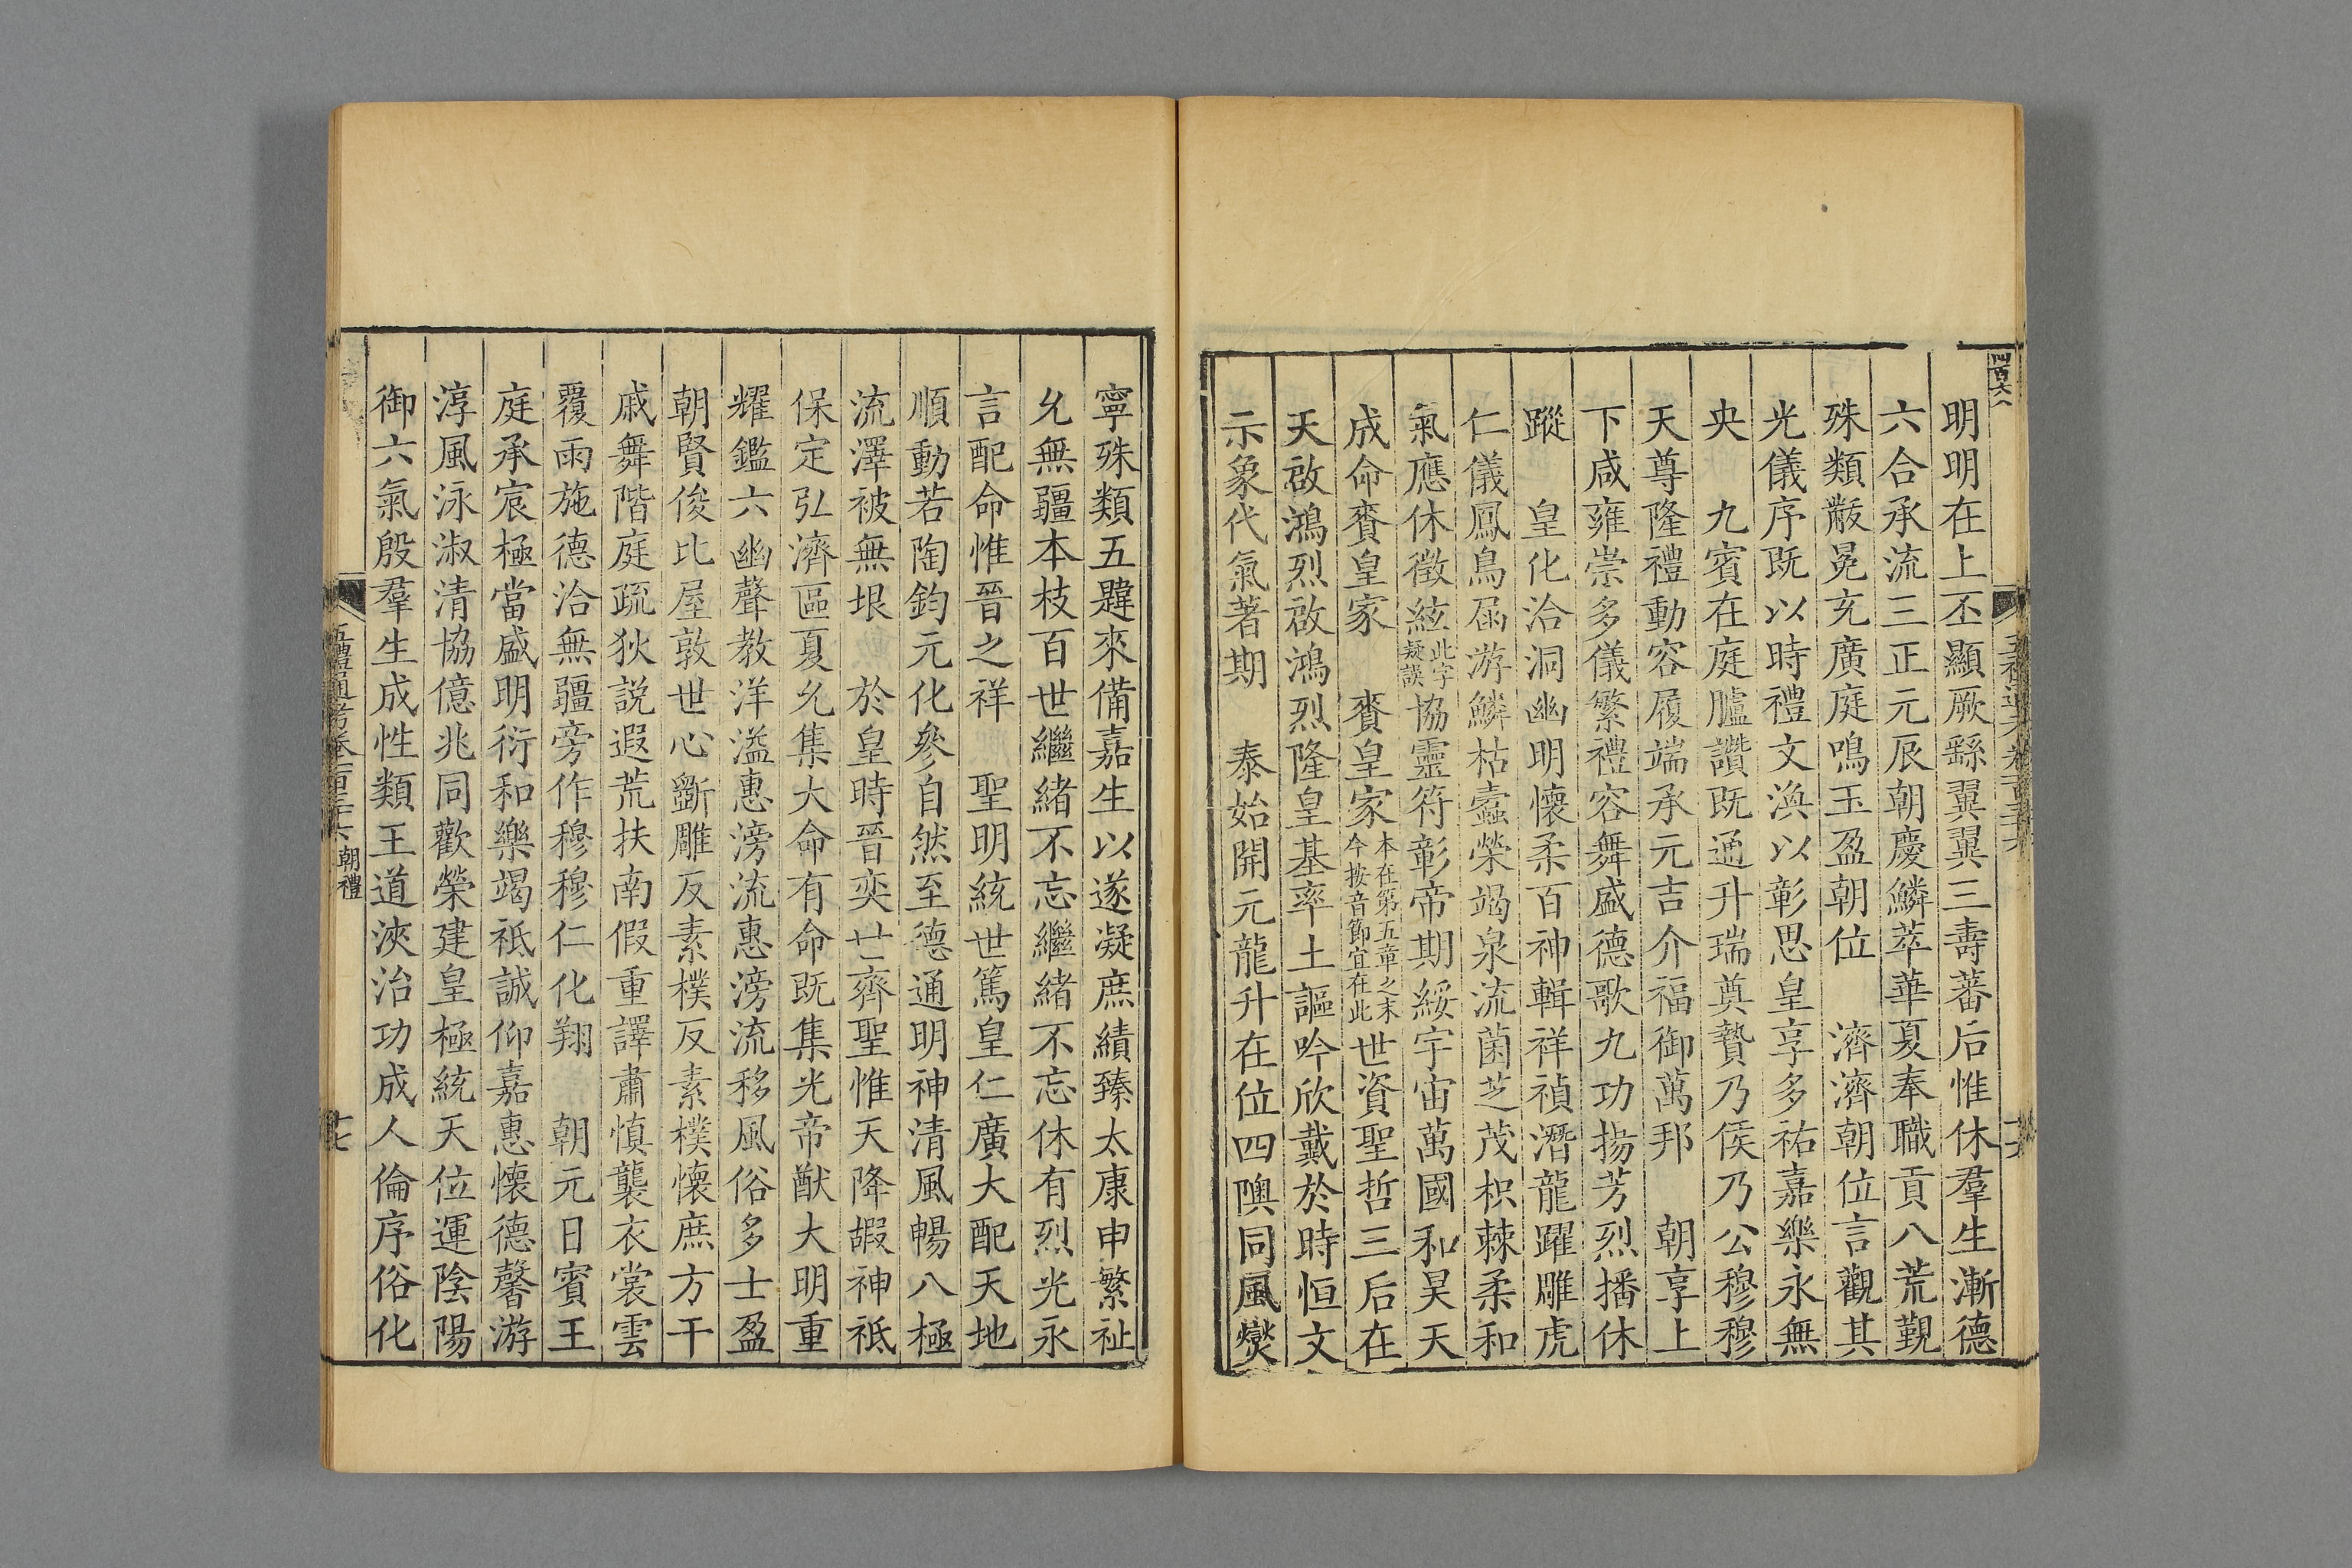 明明在上丕顯厥繇翼翼三壽蕃后惟休羣生漸德
六合承流三正元辰朝慶鱗萃華夏奉職貢八荒覲
殊類黻冕充廣庭鳴玉盈朝位　濟濟朝位言觀其
光儀序既以時禮文渙以彰思皇享多祐嘉樂永無
央　九賓在庭臚讚既通升瑞奠贄乃侯乃公穆穆
天尊隆禮動容履端承元吉介福御萬邦　朝享上
下咸雍崇多儀繁禮容舞盛德歌九功揚芳烈播休
蹤　皇化洽洞幽明懷柔百神輯祥禎潛龍躍雕虎
仁儀鳳鳥屆游鱗枯蠹榮竭泉流菌芝茂枳棘柔和
氣應休徵絃此字疑誤協靈符彰帝期綏宇宙萬國和昊天
成命賚皇家　賚皇家本在第五章之末今按音節宜在此世資聖哲三后在
天啟鴻烈啟鴻烈隆皇基率土謳吟欣戴於時恒文
示象代氣著期　泰始開元龍升在位四隩同風燮
寧殊類五韙來備嘉生以遂凝庶績臻太康申繁祉
允無疆本枝百世繼緒不忘繼緒不忘休有烈光永
言配命惟晉之祥　聖明統世篤皇仁廣大配天地
順動若陶鈞元化參自然至德通明神清風暢八極
流澤被無垠　於皇時晉奕世齊聖惟天降嘏神祗
保定弘濟區夏允集大命有命既集光帝猷大明重
耀鑑六幽聲教洋溢惠滂流惠滂流移風俗多士盈
朝賢俊比屋敦世心斲雕反素樸反素樸懷庶方干
戚舞階庭疏狄說遐荒扶南假重譯肅慎襲衣裳雲
覆雨施德洽無疆旁作穆穆仁化翔　朝元日賓王
庭承宸極當盛明衍和樂竭祗誠仰嘉惠懷德馨游
淳風泳淑清協億兆同歡榮建皇極統天位運陰陽
御六氣殷羣生成性類王道浹治功成人倫序俗化
五禮通考卷一百三十六 朝禮
十七